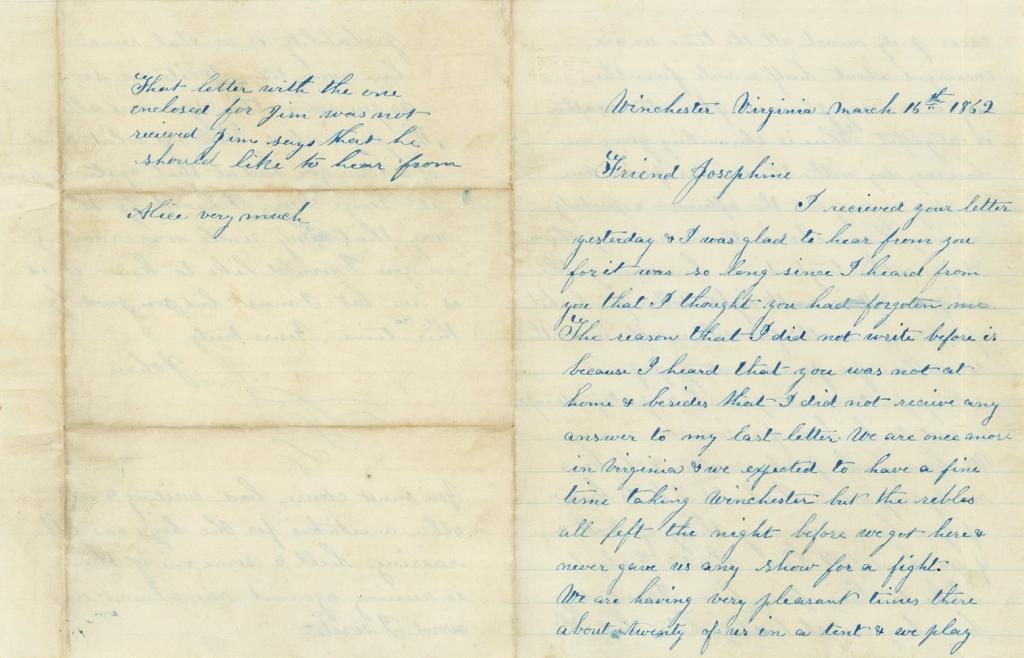 That letter with the one
enclosed for Jim was not
recieved Jim says that he
should like to hear from
Alice very much
Winchester Virginia March 16th 1862
Friend Josephine
I recieved your letter
yesterday & I was glad to hear from you
for it was so long since I heard from
you that I thought you had forgoten me
The reason that I did not write before is
because I heard that you was not at
home & besides that I did not recieve any
answer to my last letter. We are once more
in Virginia & we expected to have a fine
time taking Winchester but the rebles
all left the night before we got here &
never gave us any show for a fight.
We are having very pleasant times there
about twenty of us in a tent & we play